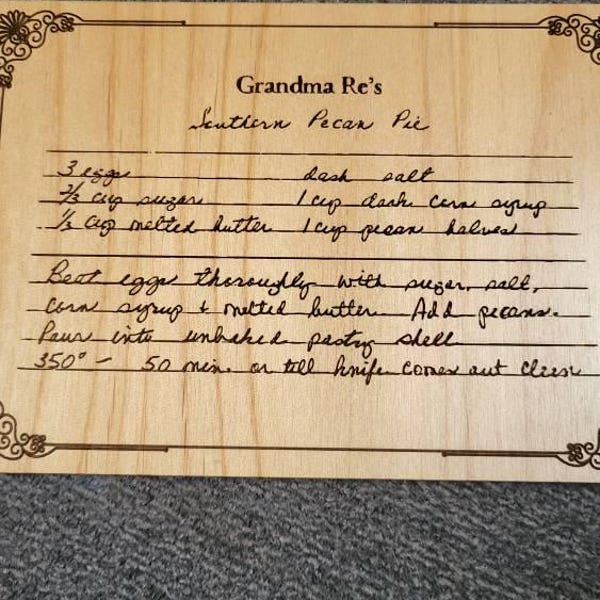 Grandma Re's
Southern Pecan Pie
3 eggs dash salt
2/3 cup sugar 1 cup dark corn syrup
1/3 cup melted butter 1 cup pecan halves
Beat eggs thoroughly with sugar, salt,
corn syrup & melted butter. Add pecans.
Pour into unbaked pastry shell
350° - 50 min. or till knife comes out clean